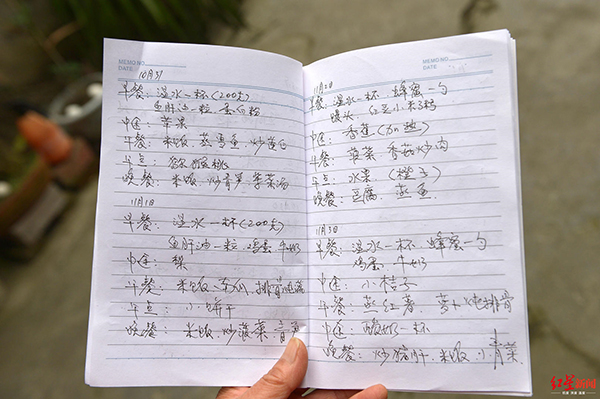 MEMO NO.
DATE
10月31
早餐：温水一杯（200克）
鱼肝油一粒 蛋白粉
中途：苹果
午餐：米饭 蒸鱼 炒
午点：猕猴桃
晚餐：米饭 炒青菜 汤
11月1日
早餐：温水一杯（200克）
鱼肝油一粒 鸡蛋 牛奶
中途：梨
午餐：米饭 冬瓜 排骨
午点：小饼干
晚餐：米饭 炒菠菜
MEMO NO.
DATE
11月2日
早餐：温水一杯 蜂蜜一勺
馒头 红豆小米粥
中途：香蕉
午餐：菠菜 香菇炒肉
午点：水果（橙子）
晚餐：豆腐 蒸鱼
11月3日
早餐：温水一杯 蜂蜜一勺
鸡蛋 牛奶
中途：小桔子
午餐：蒸红薯 萝卜炖排骨
中途：酸奶一杯
晚餐：炒猪肝 米饭 小青菜
红星新闻